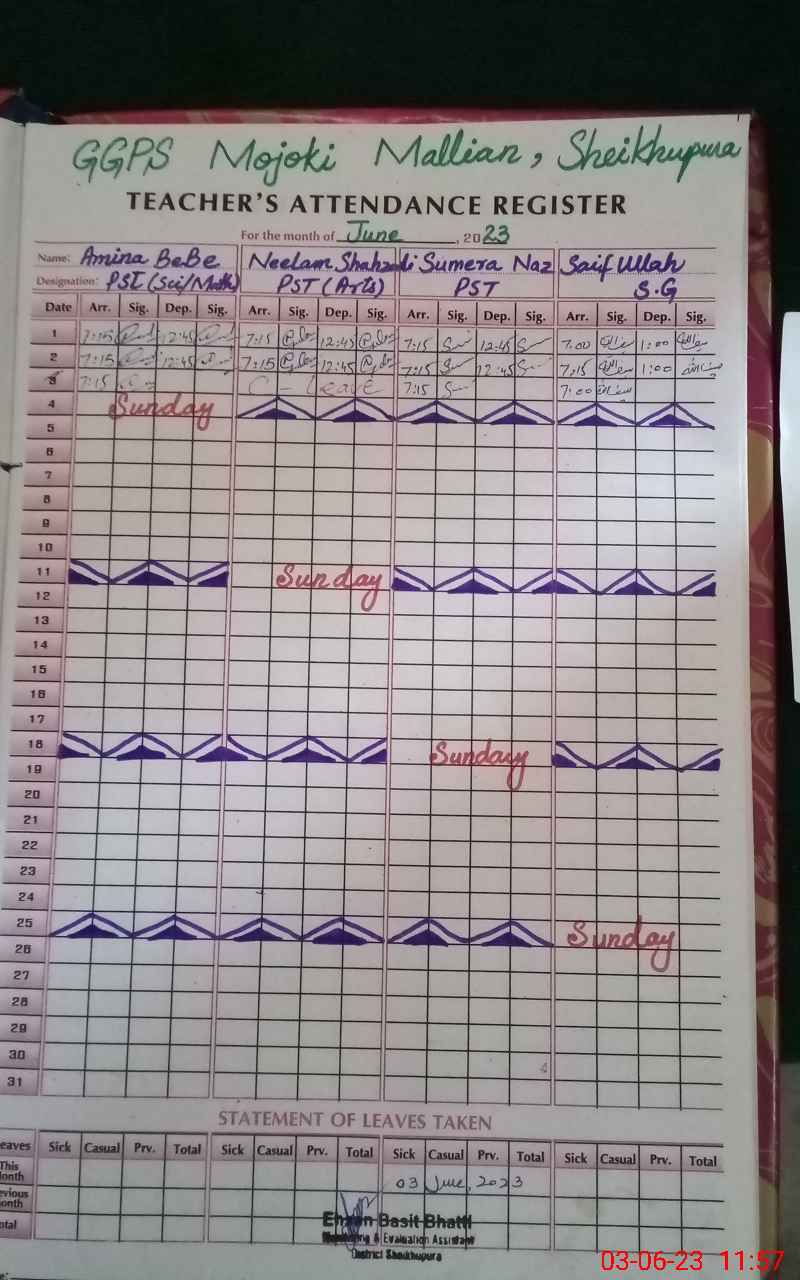 GGPS Mojoki Mallian, Sheikhupura
TEACHER'S ATTENDANCE REGISTER
For the month of June, 2023
Name: Amina BeBe Neelam Shahzadi Sumera Naz Saif Ullah
Designation: PST (Sci/Math) PST (Arts) PST S.G
Date Arr. Sig. Dep. Sig. Arr. Sig. Dep. Sig. Arr. Sig. Dep. Sig. Arr. Sig. Dep. Sig.
1 7:15 12:45 7:15 12:45 7:15 12:45 7.00 1:00
2 7:15 12:45 7:15 12:45 7:15 12:45 7:15 1:00
3 7:15 C-leave 7:15 7:00
4 Sunday
5
6
7
8
9
10
11 Sunday
12
13
14
15
16
17
18 Sunday
19
20
21
22
23
24
25 Sunday
26
27
28
29
30
31
STATEMENT OF LEAVES TAKEN
eaves Sick Casual Prv. Total Sick Casual Prv. Total Sick Casual Prv. Total Sick Casual Prv. Total
This
onth 03 June, 2023
evious
onth
otal
Basit Bhatti
& Evaluation Assistant
District Sheikhupura
03-06-23 11:57